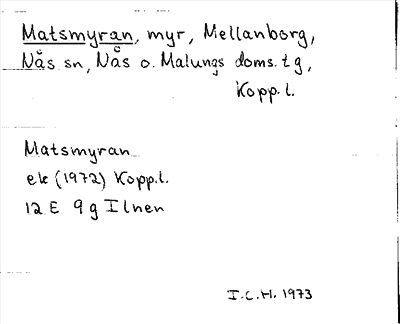 Matsmyran, myr, Mellanborg,
Nås sn, Nås o. Malungs doms.tg,
Kopp.l.
Matsmyran
ek (1972) Kopp.l.
12 E 9 g Ilnen
I.C.H. 1973